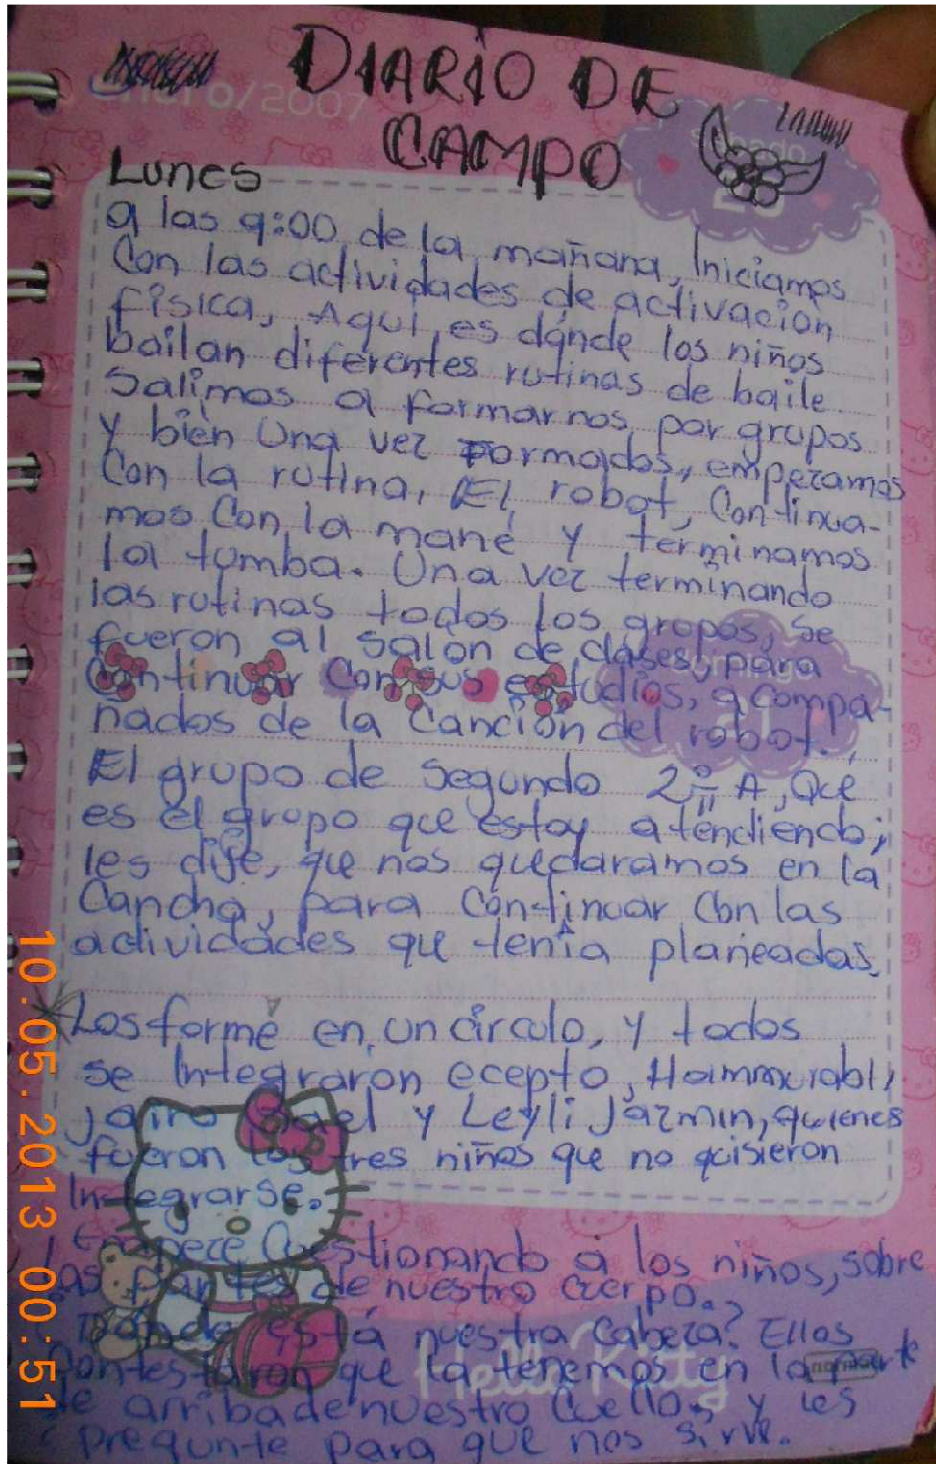 DIARIO DE
CAMPO
enero/2007
Sábado
20
Lunes
a las 9:00 de la mañana, Iniciamos
Con las actividades de activación
física, Aquí es dónde los niños
bailan diferentes rutinas de baile.
Salimos a formarnos por grupos
y bien Una vez Formados, empezamos
Con la rutina, El robot, Continua-
mos Con la mané y terminamos
la tumba. Una vez terminando
las rutinas todos los grupos, se
fueron al salón de clases, para
Continuar Con sus estudios, acompa-
ñados de la Canción del robot.
Domingo
21
El grupo de segundo 2º A, Que
es el grupo que estoy atendiendo;
les dije, que nos quedaramos en la
Cancha, para Continuar Con las
actividades que tenía planeadas.
Los formé en un circulo, y todos
se Integraron ecepto, Hammurabi,
Jairo Gael y Leyli Jazmin, quienes
fueron los tres niños que no quisieron
Integrarse.
Empece Cuestionando a los niños, sobre
las partes de nuestro cuerpo.
Dónde está nuestra Cabeza? Ellos
Contestaron que la tenemos en la parte
de arriba de nuestro Cuello, y les
pregunte para que nos sirve.
Hello Kitty
10.05.2013 00:51